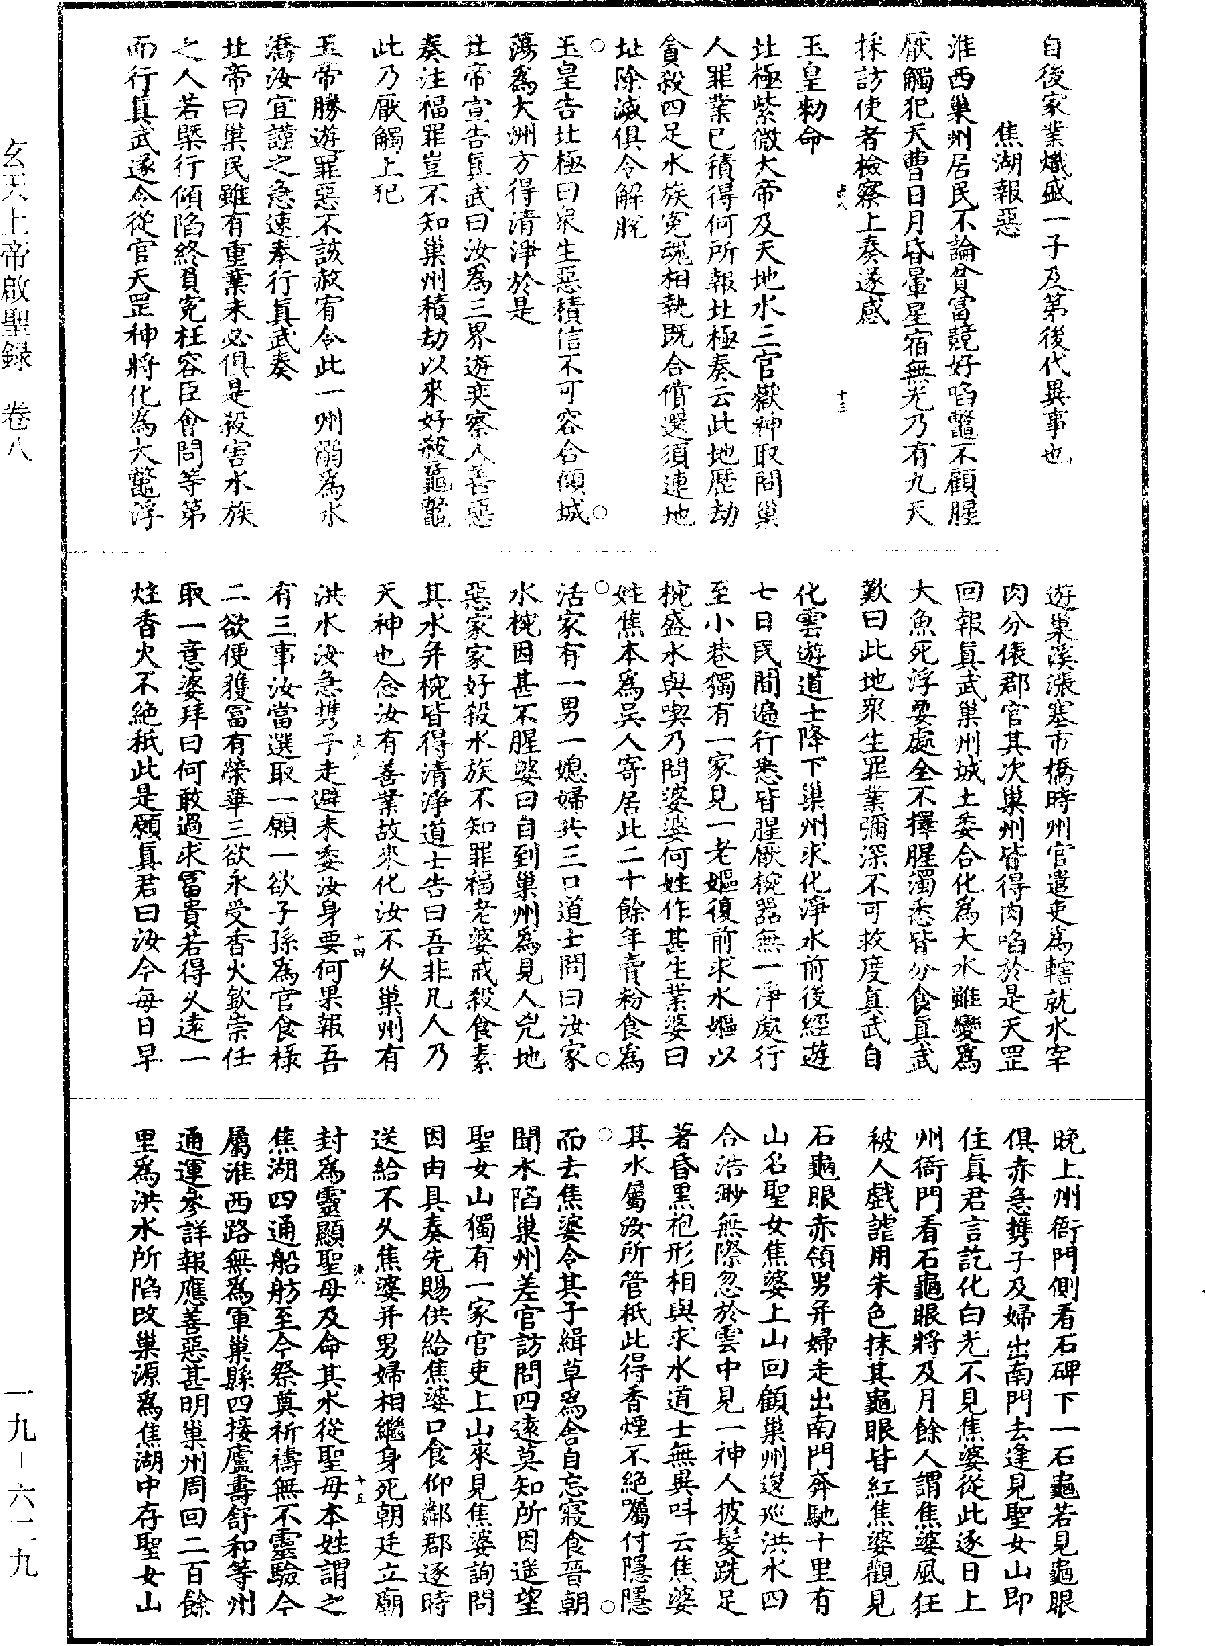 自後家業熾盛一子及第後代異事也
焦湖報惡
淮西巢州居民不論貧富競好啗鼈不顧腥
厭觸犯天曹日月昏暈星宿無光乃有九天
採訪使者檢察上奏遂感
玉皇勑命
北極紫微大帝及天地水三官嶽神取問巢
人罪業已積得何所報北極奏云此地歷劫
貪殺四足水族冤魂相執既合償還須連地
址除滅俱令解脫
玉皇告北極曰衆生惡積信不可容合傾城
蕩為大洲方得清淨於是
北帝宣告真武曰汝為三界遊奕察人善惡
奏注福罪豈不知巢州積劫以來好殺龜鼈
此乃厭觸上犯
玉帝勝遊罪惡不該赦宥令此一州溺為水
潏汝宜謹之急速奉行真武奏
北帝曰巢民雖有重業未必俱是殺害水族
之人若槩行傾陷終負冤枉容臣會問等第
而行真武遂令從官天罡神將化為大鼈浮
遊巢溪漲塞市橋時州官遣吏為轄就水宰
肉分俵郡官其次巢州皆得肉啗於是天罡
回報真武巢州城土委合化為大水雖變為
大魚死浮要處全不擇腥濁悉皆分食真武
歎曰此地衆生罪業彌深不可救度真武自
化雲遊道士降下巢州求化淨水前後經遊
七日民間遍行悉皆腥厭椀器無一淨處行
至小巷獨有一家見一老嫗復前求水嫗以
椀盛水與喫乃問婆婆何姓作甚生業婆曰
姓焦本為吳人寄居此二十餘年賣粉食為
活家有一男一媳婦共三口道士問曰汝家
水椀因甚不腥婆曰自到巢州為見人兇地
惡家家好殺水族不知罪福老婆戒殺食素
其水并椀皆得清淨道士告曰吾非凡人乃
天神也念汝有善業故來化汝不久巢州有
洪水汝急携子走避未委汝身要何果報吾
有三事汝當選取一願一欲子孫為官食祿
二欲便獲富有榮華三欲永受香火欽崇任
取一意婆拜曰何敢過求冨貴若得久遠一
炷香火不絕秪此是願真君曰汝今每日早
晚上州衙門側看石碑下一石龜若見龜眼
俱赤急攜子及婦出南門去逢見聖女山即
住真君言訖化白光不見焦婆從此逐日上
州衙門看石龜眼將及月餘人謂焦婆風狂
被人戲謔用朱色抹其龜眼皆紅焦婆觀見
石龜眼赤領男并婦走出南門奔馳十里有
山名聖女焦婆上山回顧巢州逡巡洪水四
合浩渺無際忽於雲中見一神人披髮跣足
著昏黑袍形相與求水道士無異呌云焦婆
其水屬汝所管秪此得香煙不絕囑付隱隱
而去焦婆令其子緝草為舍自忘寢食晉朝
聞水陷巢州差官訪問四遠莫知所因遥望
聖女山獨有一家官吏上山來見焦婆詢問
因由具奏先賜供給焦婆口食仰鄰郡逐時
送給不久焦婆并男婦相繼身死朝廷立廟
封為靈顯聖母及命其水從聖母本姓謂之
焦湖四通船舫至今祭奠祈禱無不靈驗今
屬淮西路無為軍巢縣四接廬壽舒和等州
通運參詳報應善惡甚明巢州周回二百餘
里為洪水所陷改巢源為焦湖中存聖女山
玄天上帝啟聖録　卷八
一九－六二九